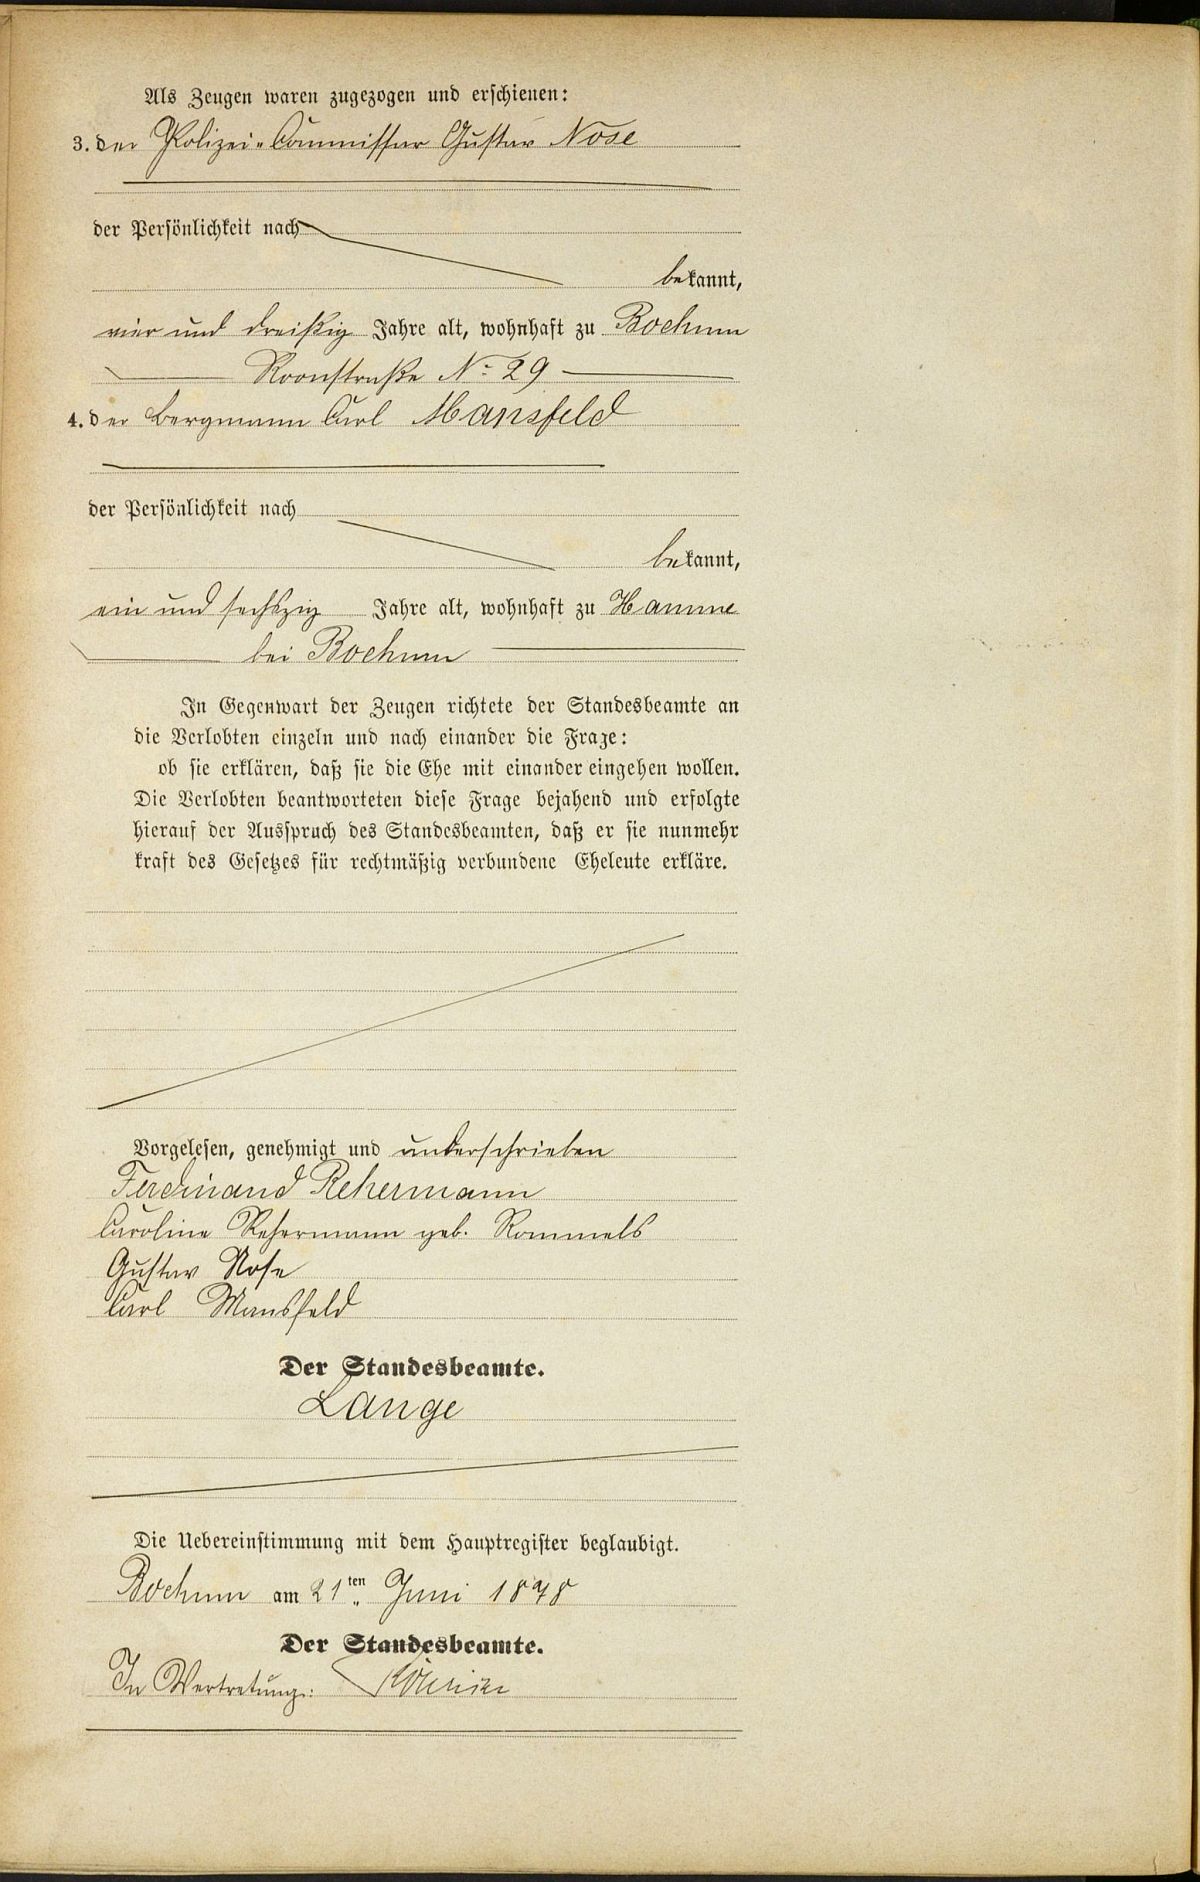 Als Zeugen waren zugezogen und erschienen:
3. der Polizei-Commissar Gustav Nose
der Persönlichkeit nach
bekannt,
vier und dreißig Jahre alt, wohnhaft zu Bochum
Roonstraße No 29
4. der Bergmann Carl Mansfeld
der Persönlichkeit nach
bekannt,
ein und sechszig Jahre alt, wohnhaft zu Hamme
bei Bochum
In Gegenwart der Zeugen richtete der Standesbeamte an
die Verlobten einzeln und nach einander die Frage:
ob sie erklären, daß sie die Ehe mit einander eingehen wollen.
Die Verlobten beantworteten diese Frage bejahend und erfolgte
hierauf der Ausspruch des Standesbeamten, daß er sie nunmehr
kraft des Gesetzes für rechtmäßig verbundene Eheleute erkläre.
Vorgelesen, genehmigt und unterschrieben
Ferdinand Rehermann
Caroline Rehermann geb. Rommels
Gustav Nose
Carl Mansfeld
Der Standesbeamte.
Lange
Die Uebereinstimmung mit dem Hauptregister beglaubigt.
Bochum am 21ten Juni 1898
Der Standesbeamte.
In Vertretung: